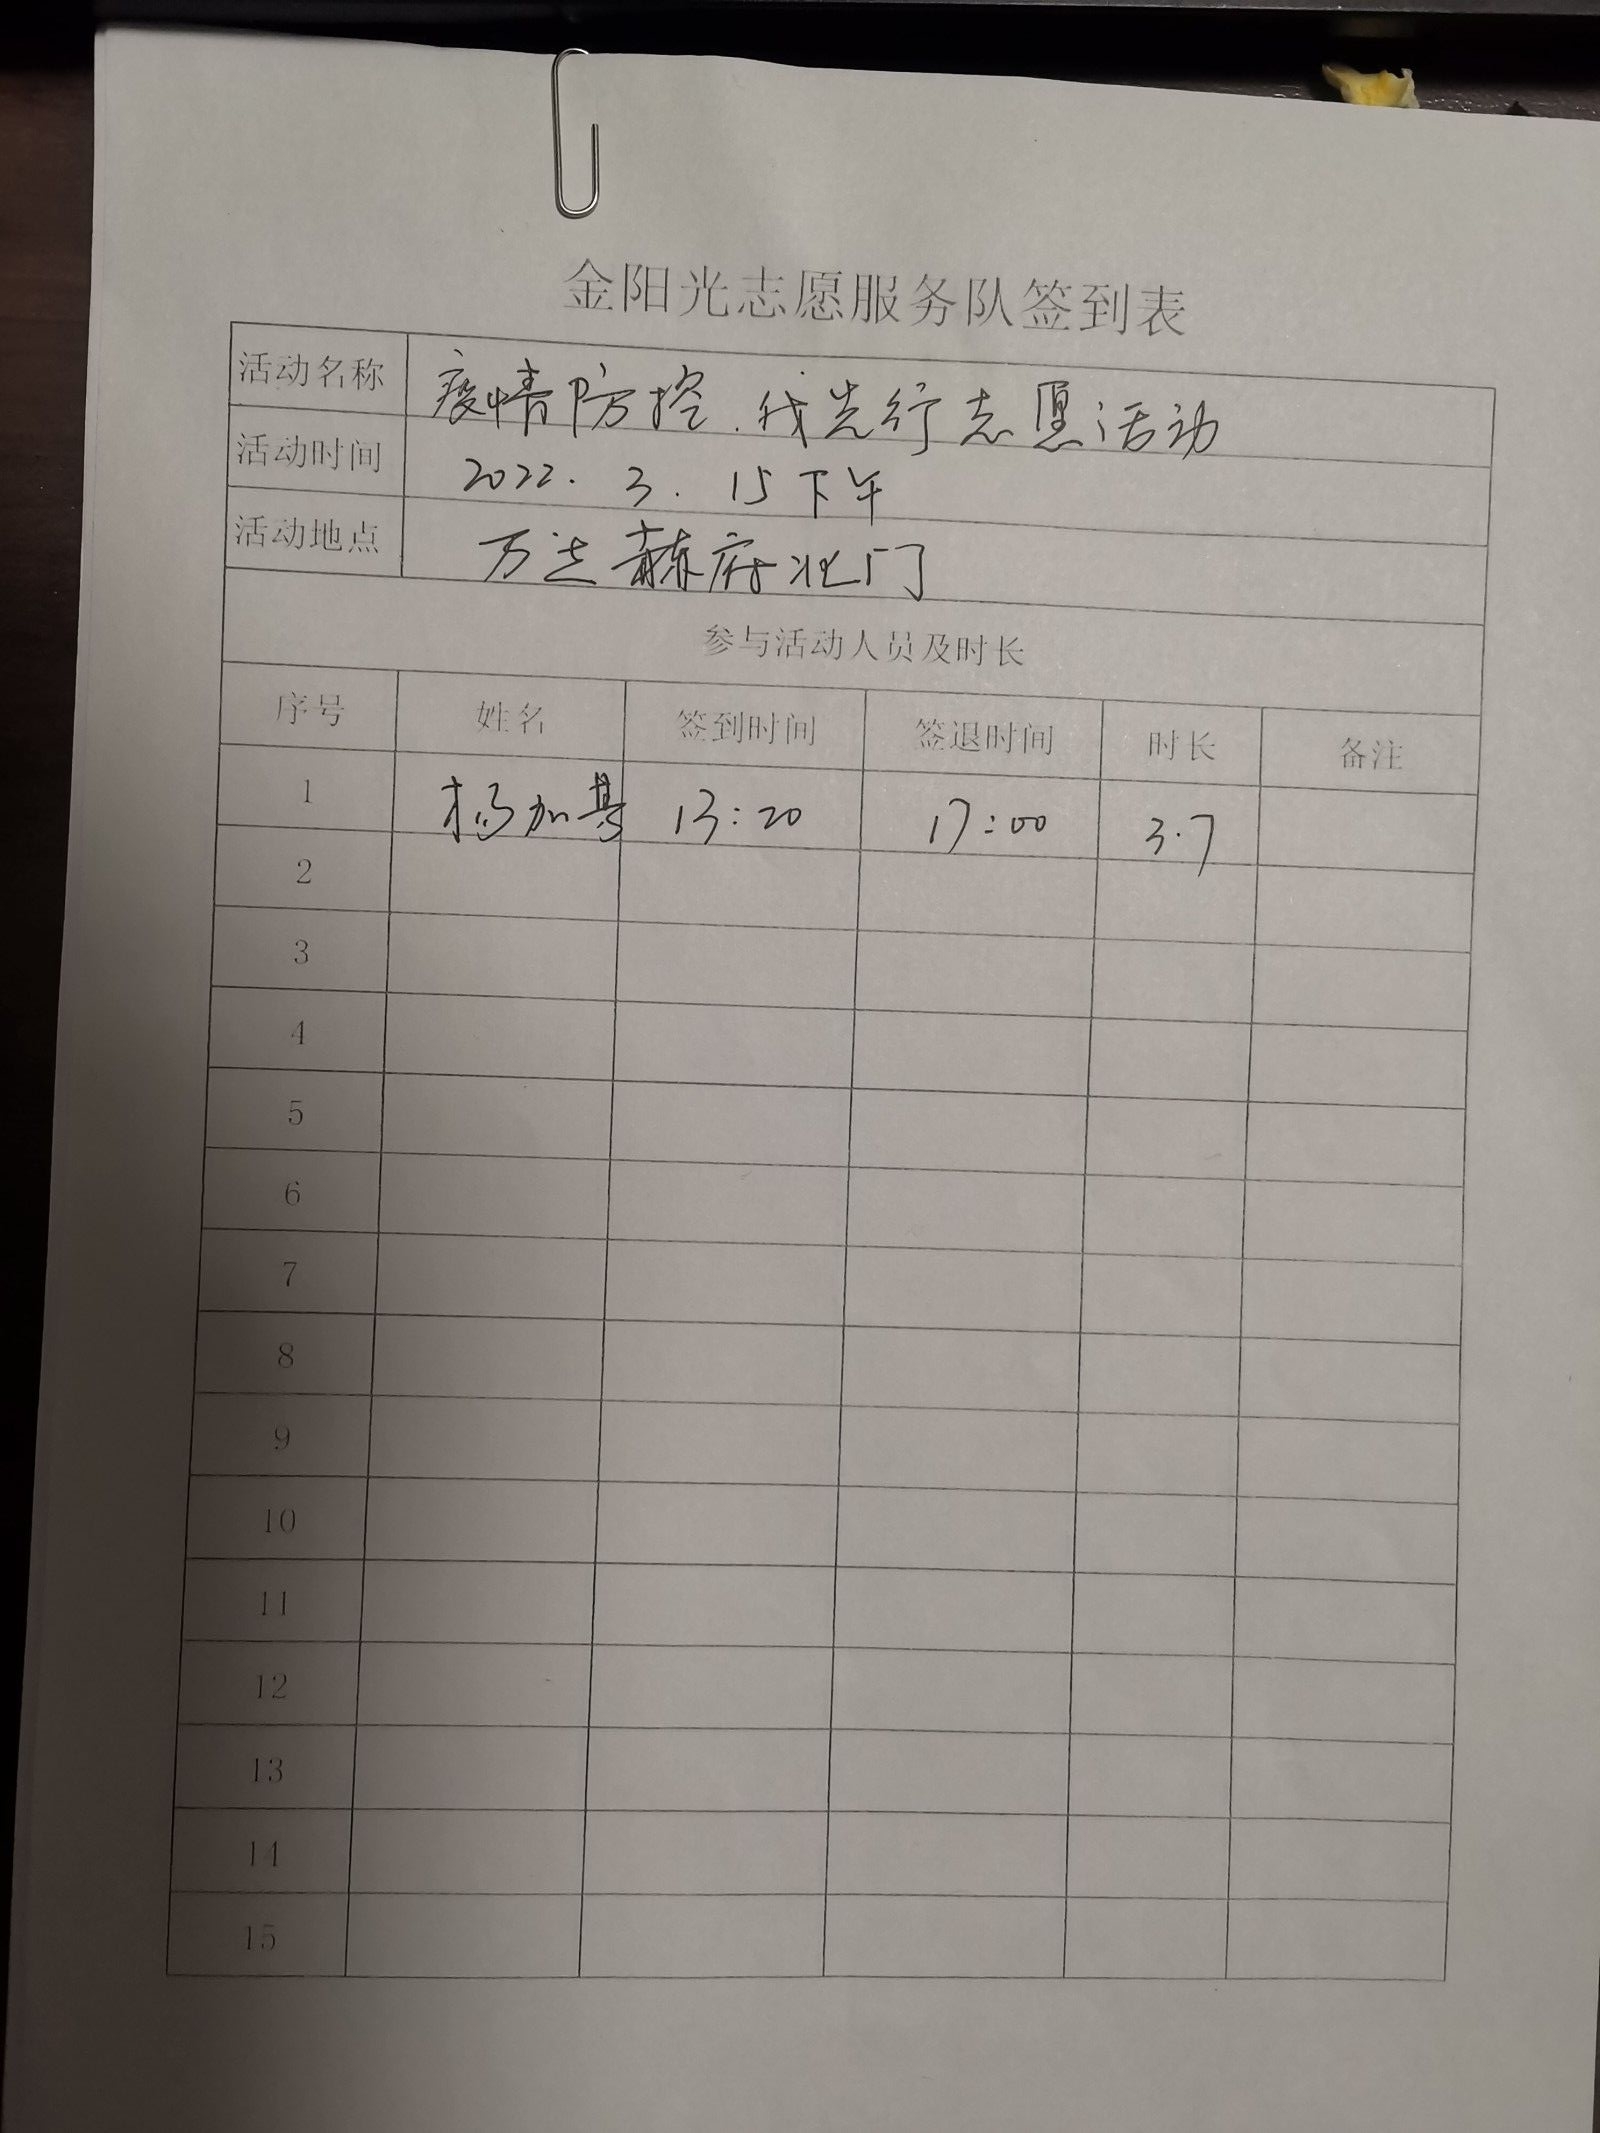 金阳光志愿服务队签到表
活动名称 疫情防控.我先行志愿活动
活动时间 2022.3.15下午
活动地点 万达赫府北门
参与活动人员及时长
序号 姓名 签到时间 签退时间 时长 备注
1 杨加基 13:20 17:00 3.7
2
3
4
5
6
7
8
9
10
11
12
13
14
15